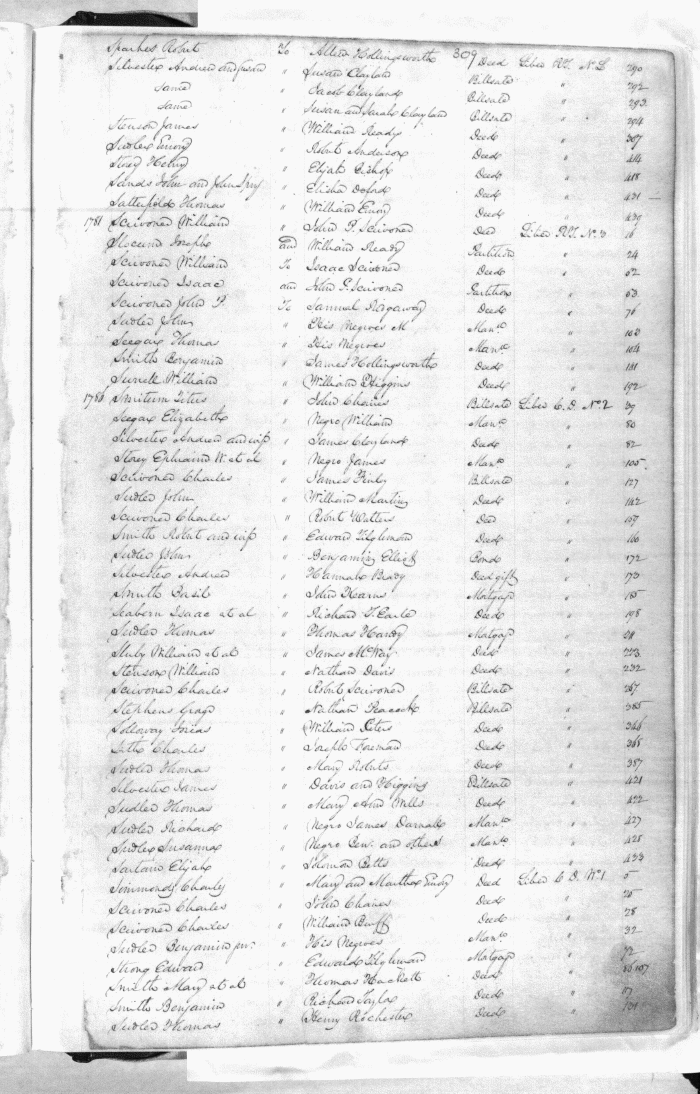 309
Sparkes Robert To Allen Hollingsworth Deed Liber
Silvester Andrew and Susan " Susan Clayland Billsale " 292
Same " Jacob Clayland Billsale " 293
Same " Susan and Sarah Clayland Billsale " 294
Stenson James " William Ready Deed " 307
Sudler Emory " Robert Anderson Deed " 414
Story Henry " Elijah Bishop Deed " 418
Sands John and John " Elisha Deford Deed " 431
Satterfield Thomas " William Emory Deed " 439
1781 Scrivoner William " John P. Scrivoner Deed Liber No. 3 16
Slocum Joseph and William Ready Partition " 24
Scrivoner William To Isaac Scrivoner Deed " 52
Scrivoner Isaac and John P. Scrivoner Partition " 53
Scrivoner John P. To Samuel Ridgaway Deed " 76
Sudler John " His Negroes M Man.o " 103
Seegar Thomas " His Negroes Man.o " 104
Smith Benjamin " James Hollingsworth Deed " 181
William " William Higgins Deed " 192
Titus " John Chaires Billsale Liber C. D. No. 2 39
Seegar Elizabeth " Negro William Man.o " 80
Silvester Andrew and " James Clayland Deed " 82
Story Ephraim W. et al " Negro James Man.o " 105
Scrivoner Charles " James Finly Billsale " 127
Sudler John " William Martin Deed " 142
Scrivoner Charles " Robert Walters Deed " 159
Smith Robert and " Edward Tilghman Deed " 166
Sudler John " Benjamin Elliott Bond " 172
Silvester Andrew " Hannah Brady Deed gift " 173
Smith Basil " John Hearns Matgage " 185
Seaborn Isaac et al " Richard T. Earle Deed " 198
Sudler Thomas " Thomas Hardy Matgage " 211
William et al " James McVay Deed " 223
Stenson William " Nathan Davis Deed " 232
Scrivoner Charles " Robert Scrivoner Billsale " 267
Stephens " Nathan Peacock Billsale " 385
Solloway " William Peters Deed " 346
Charles " Joseph Foreman Deed " 365
Sudler Thomas " Mary Roberts Deed " 387
Silvester James " Davis and Higgins Billsale " 421
Sudler Thomas " Mary Ann Wells Deed " 422
Sudler Richard " Negro James Darnall Man.o " 427
Sudler Susanna " Negro Ben. and others Man.o " 428
Sartain Elijah " Solomon Betts Deed " 433
Simmonds Charles " Mary and Martha Emory Deed Liber C. D. No. 1 5
Scrivoner Charles " John Chaires Deed " 25
Scrivoner Charles " William Deed " 28
Sudler Benjamin jun. " His Negroes Man.o " 32
Strong Edward " Edward Tilghman Matgage " 72
Smith Mary et al " Thomas Hackett Deed "
Smith Benjamin " Richard Taylor Deed " 97
Sudler Thomas " Henry Rochester Deed " 101